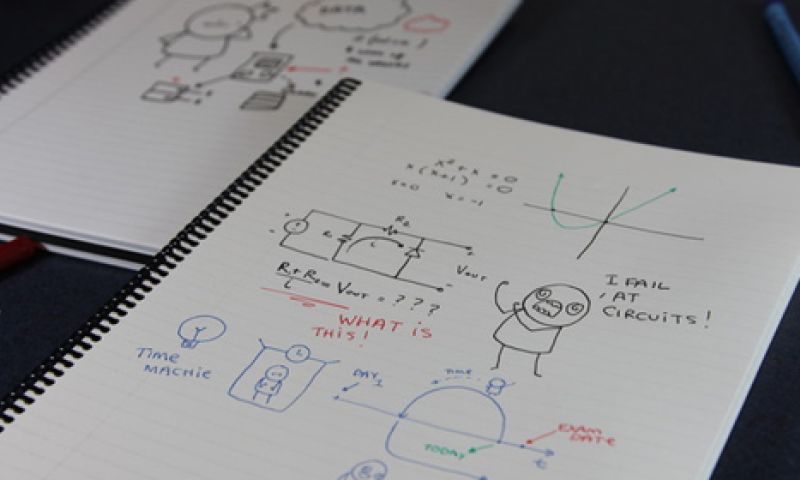 DATA
x² + x = 0
x(x+1) = 0
x=0 x = -1
R₂
R₁
L
+
-
VOUT
R₁+R₂ = VOUT = ???
L
WHAT IS
THIS!
I FAIL
AT
CIRCUITS!
TIME
MACHIE
DAY 1
TIME
EXAM
DATE
TODAY
t